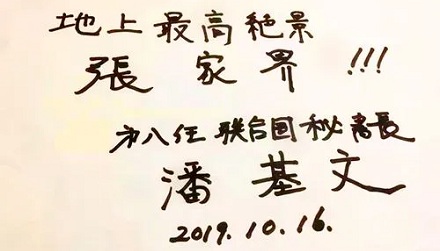 地上最高絶景
張家界!!!
第八任 联合国秘書長
潘基文
2019.10.16.